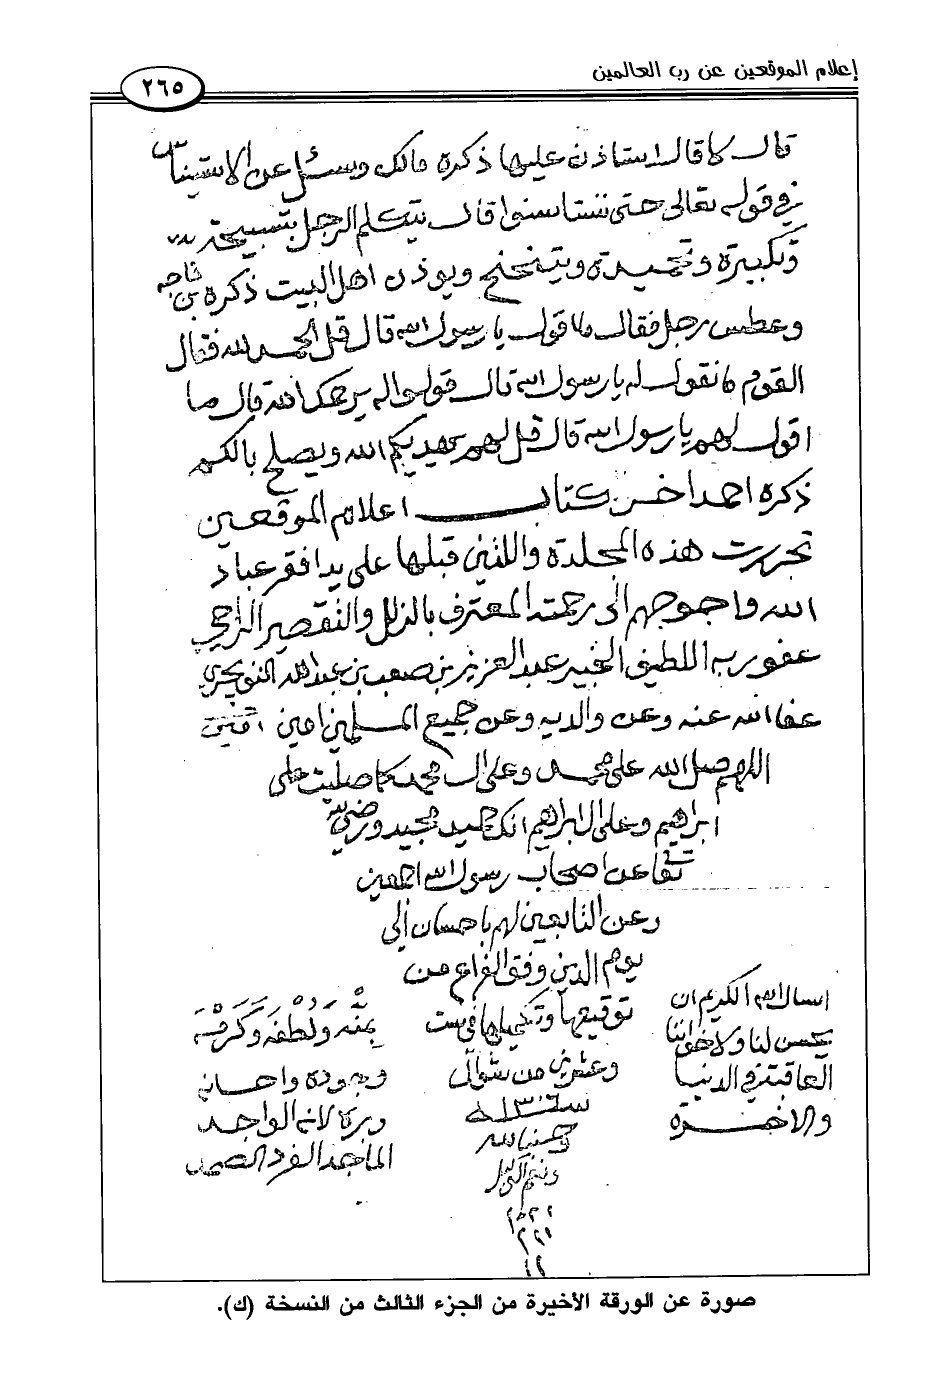 إعلام الموقعين عن رب العالمين
٢٦٥
قال كما قال استاذن عليها ذكره مالك وسئل عن الاستيناس
في قوله تعالى حتى تستانسوا قال يتكلم الرجل بتسبيحة
وتكبيرة وتحميدة ويتنحنح ويوذن اهل البيت ذكره بن ماجه
وعطس رجل فقال ما قول يا رسول الله قال قل الحمد لله فقال
القوم ما نقول له يا رسول الله قال قولوا له يرحمك الله قال ما
اقول لهم يا رسول الله قال قل لهم يهديكم الله ويصلح بالكم
ذكره احمد اخر كتاب اعلام الموقعين
تحررت هذه المجلدة واللتين قبلها على يد افقر عباد
الله واحوجهم الى رحمته المعترف بالزلل والتقصير الراجي
عفو ربه اللطيف الخبير عبد العزيز بن صعب بن عبد الله
عفا الله عنه وعن والديه وعن جميع المسلمين امين امين
اللهم صل الله على محمد وعلى ال محمد كما صليت على
ابراهيم وعلى ال ابراهيم انك حميد مجيد ورضي الله
تعا عن اصحاب رسول الله اجمعين
وعن التابعين لهم باحسان الى
يوم الدين وفق الفراغ من
توقيعها وتكميلها في ست
وعشرين من شوال
سنة ١٣٠٦
وحسبنا الله
ونعم الوكيل
اسال الله الكريم ان
يحسن لنا ولاخواننا
العاقبة في الدنيا
والاخرة
بمنه ولطفه وكرمه
وجوده واحسانه
وبره لانه الواحد
الماجد الفرد الصمد
صورة عن الورقة الأخيرة من الجزء الثالث من النسخة (ك).